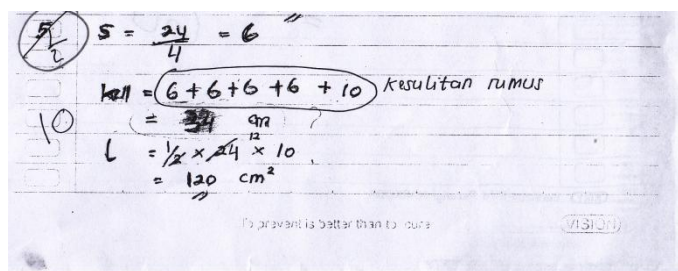 5/2 S = 24/4 = 6
kell = 6 + 6 + 6 + 6 + 10 kesulitan rumus
= 34 cm ?
10
L = 1/2 × 24 12 × 10
= 120 cm²
To prevent is better than to cure
VISION